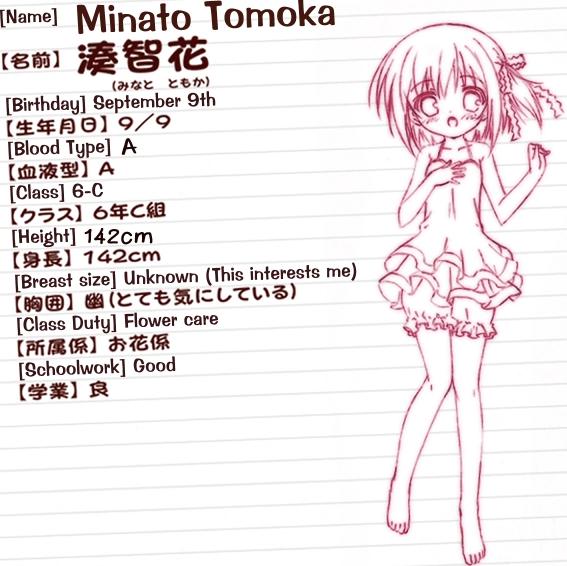 [Name] Minato Tomoka
【名前】 湊智花
(みなと ともか)
[Birthday] September 9th
【生年月日】 9／9
[Blood Type] A
【血液型】 A
[Class] 6-C
【クラス】 6年C組
[Height] 142cm
【身長】 142cm
[Breast size] Unknown (This interests me)
【胸囲】 幽(とても気にしている)
[Class Duty] Flower care
【所属係】 お花係
[Schoolwork] Good
【学業】 良